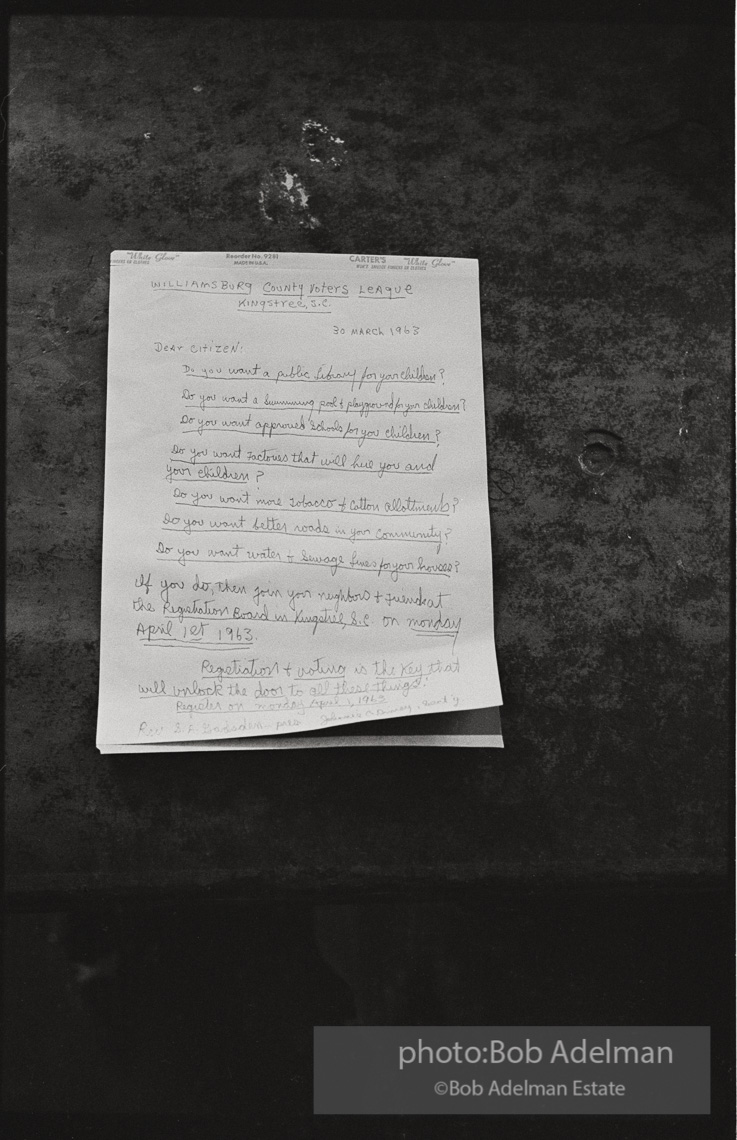 "White Glove" Reorder No. 9281 CARTER'S "White Glove"
MADE IN U.S.A. WON'T SMUDGE FINGERS OR CLOTHES
WILLIAMSBURG COUNTY VOTERS LEAGUE
KINGSTREE, S.C.
30 MARCH 1963
DEAR CITIZEN:
Do you want a public library for your children?
Do you want a swimming pool & playground for your children?
Do you want approved schools for you children?
Do you want factories that will hire you and
your children?
Do you want more Tobacco & Cotton allottments?
Do you want better roads in your community?
Do you want water & Sewage lines for your houses?
If you do, then join your neighbors & friends at
the Registration Board in Kingstree, S.C. on monday
April 1st 1963.
Registration & voting is the key that
will unlock the door to all these things!
Register on monday April 1, 1963
Rev. S.F. Gadsden - pres
photo:Bob Adelman
©Bob Adelman Estate